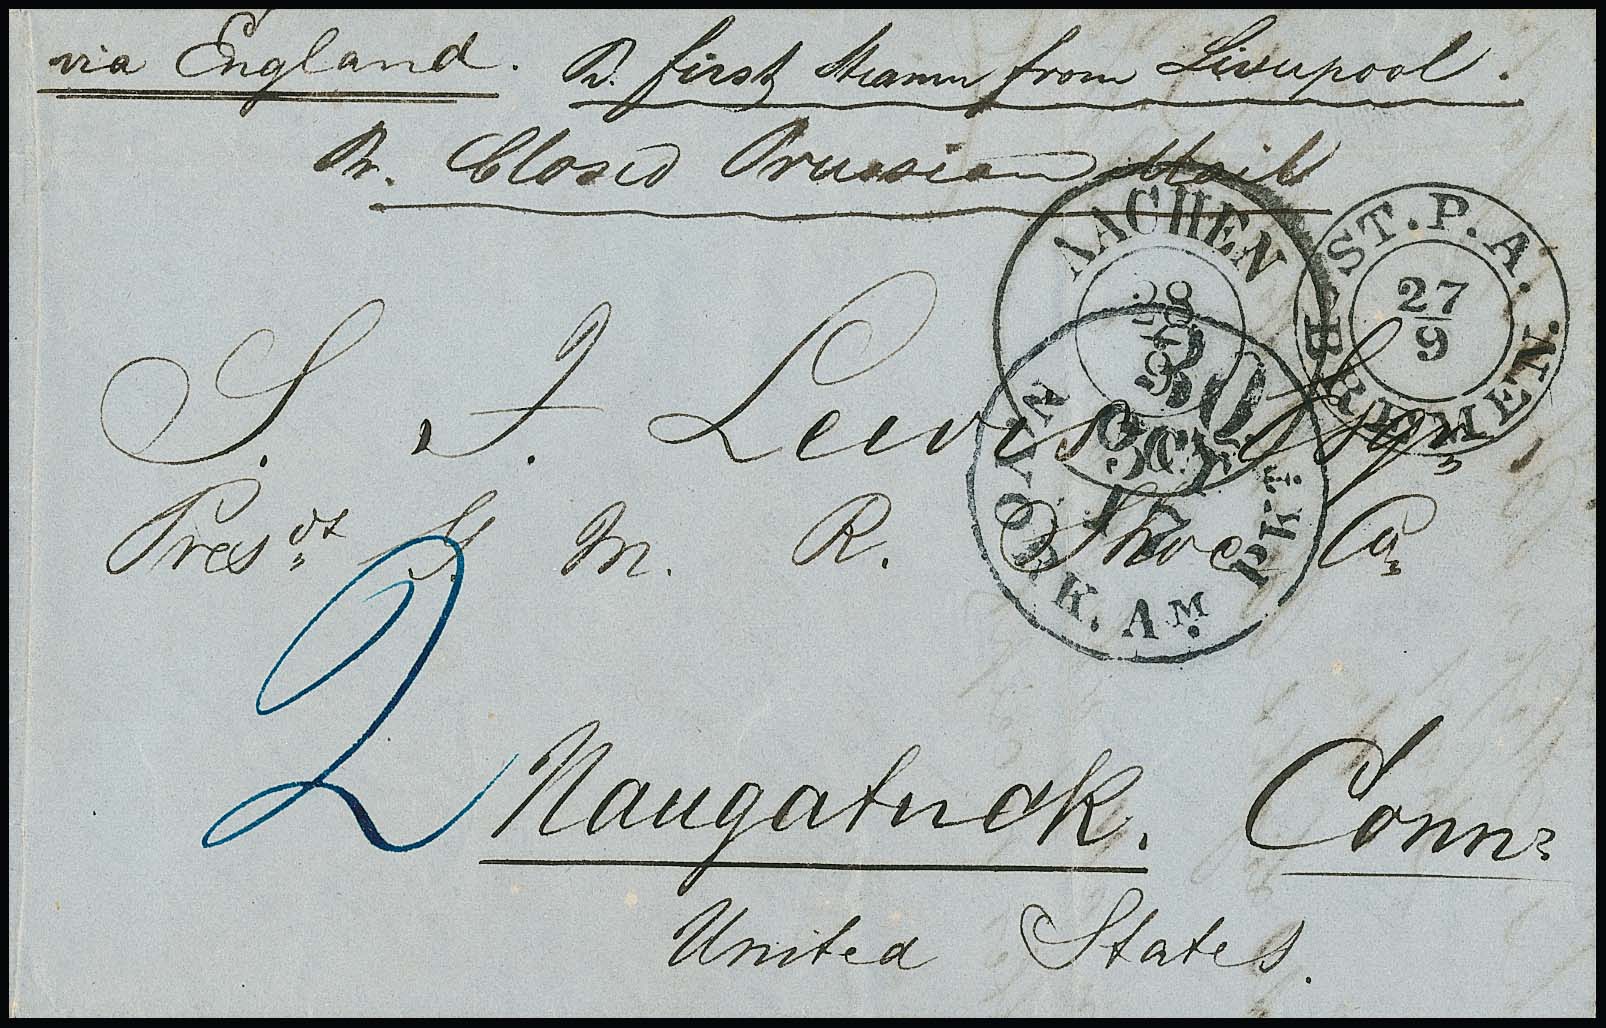 via England. Pr. first steamer from Liverpool.
Pr. Closed Prussian Mail
AACHEN
28
9
ST. P. A. BREMEN.
27
9
S. J. Lewis Esqr,
Presdt G. M. R. Shoe Co,
N. YORK. AM. PKT.
30
OCT
2
Naugatuck. Conn:
United States.